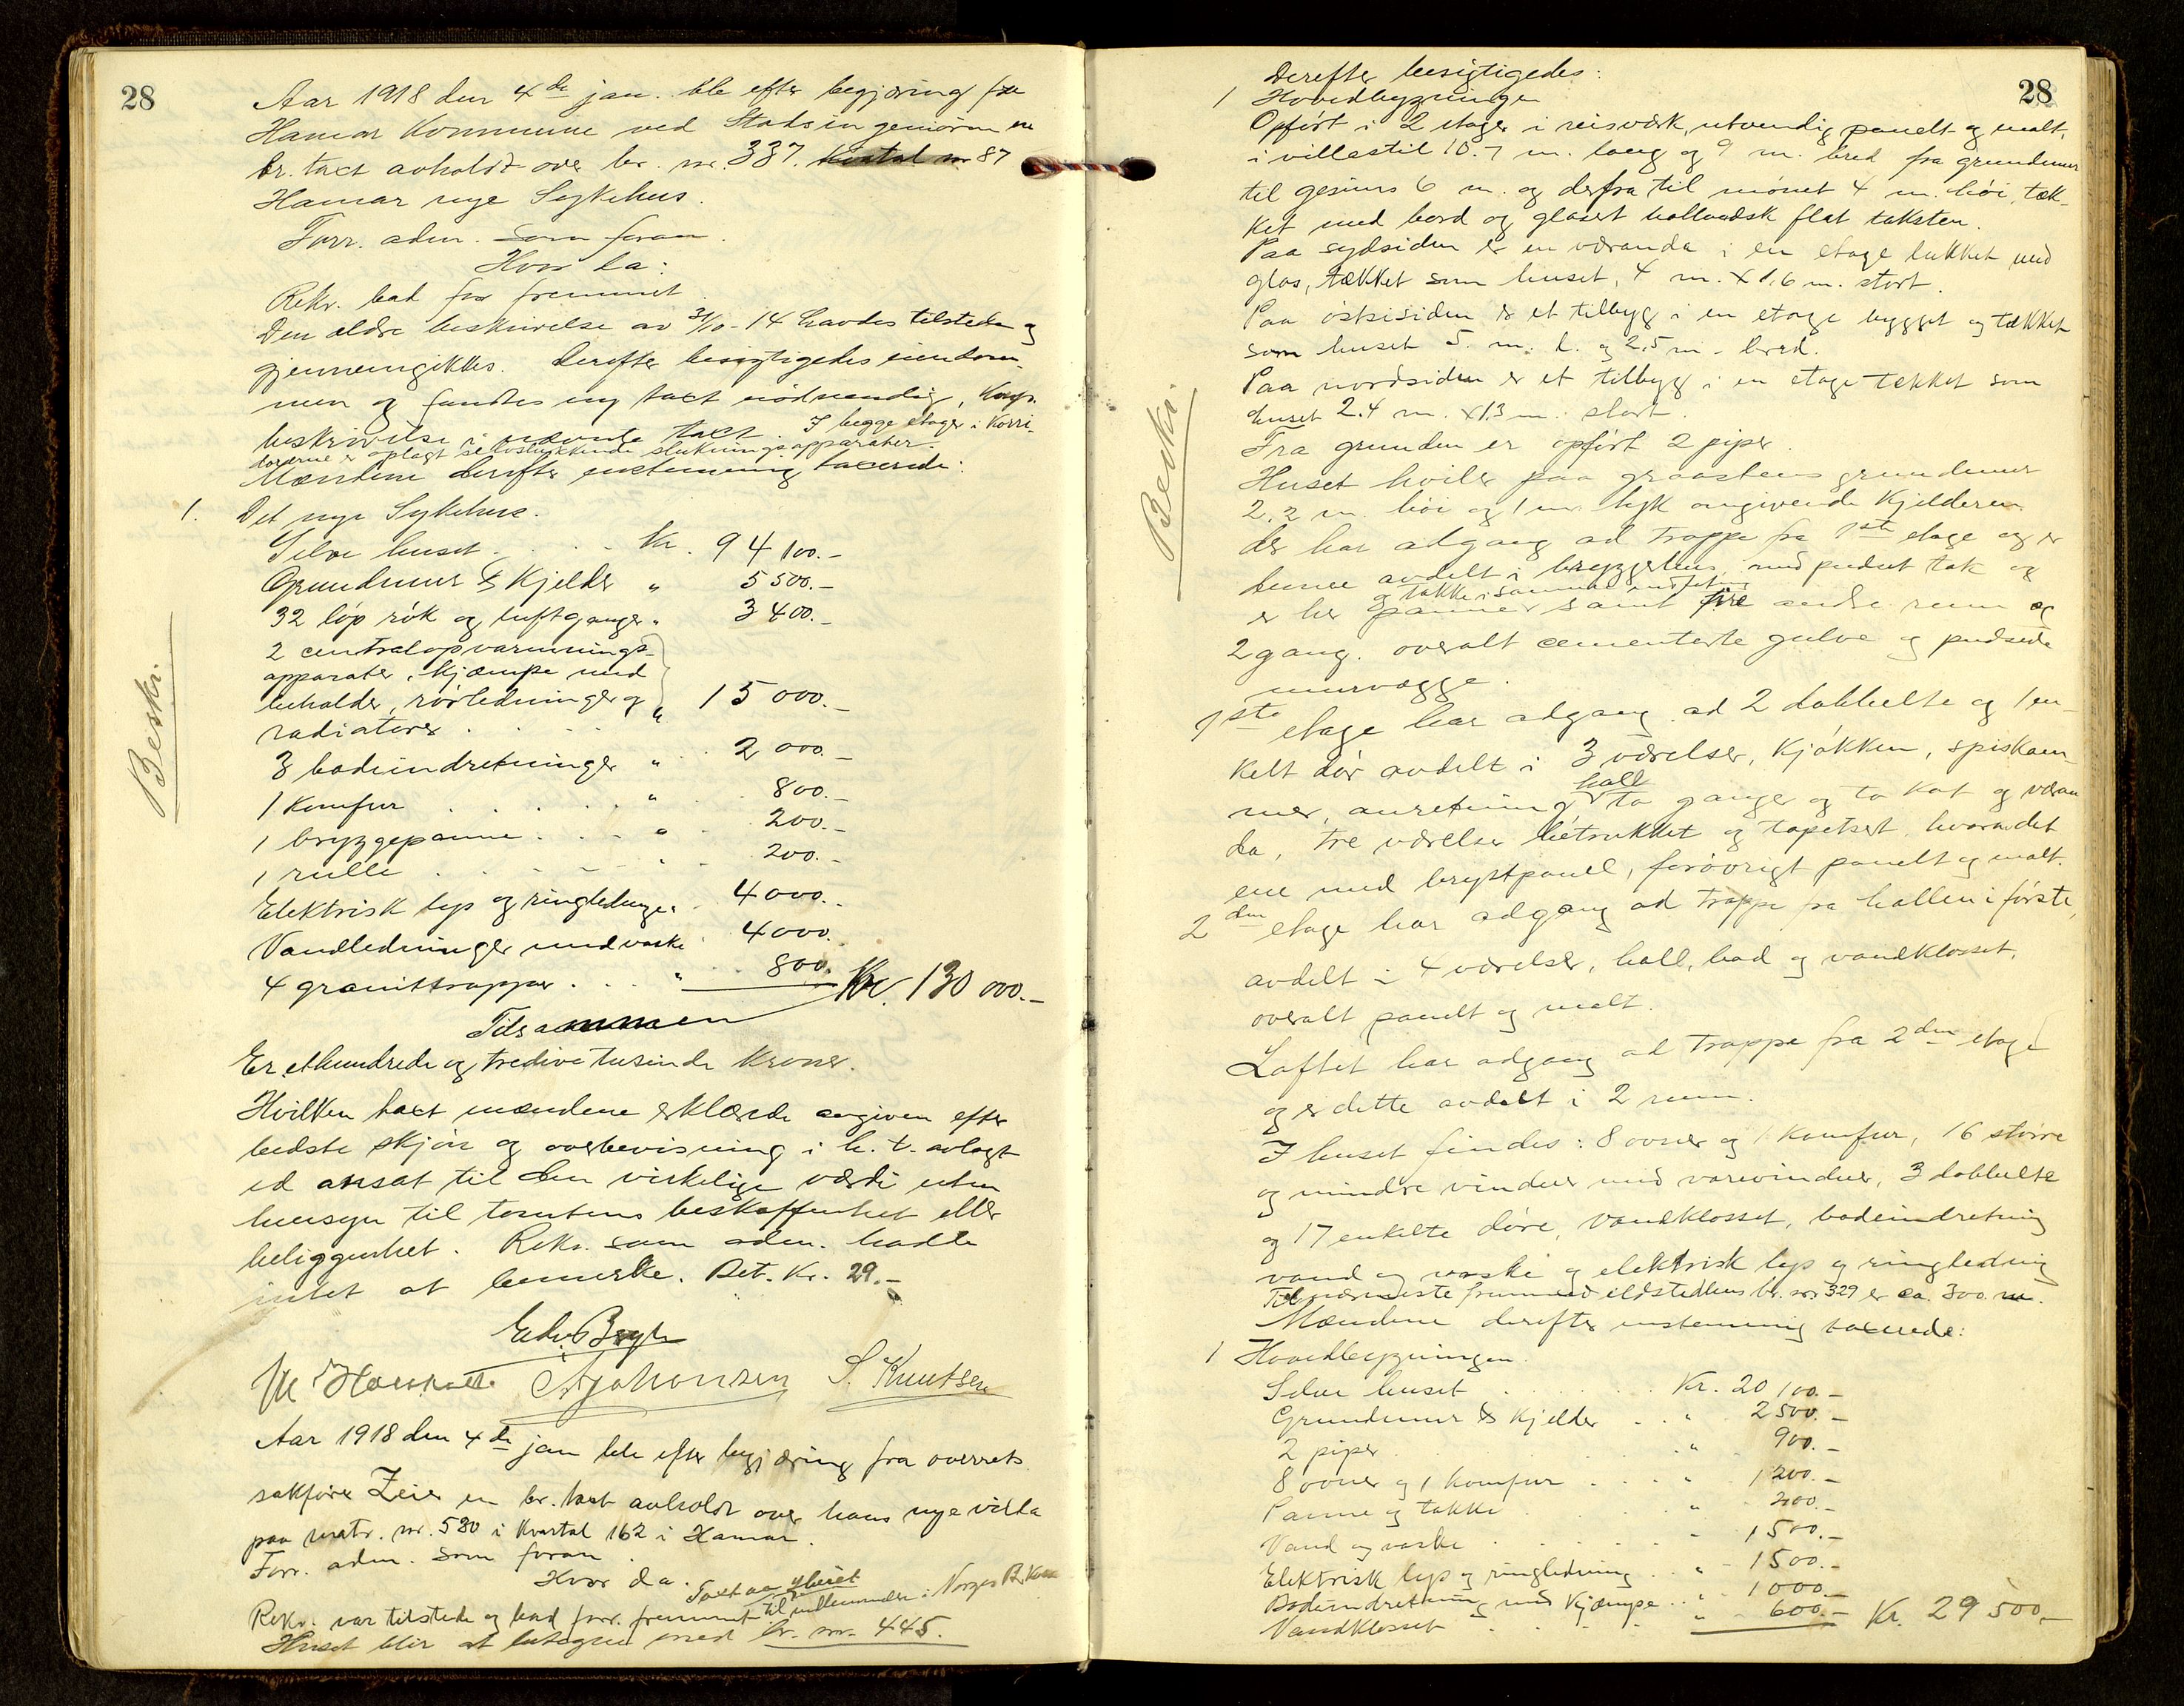 28
Aar 1918 den 4de jan. ble efter begjæring fra
Hamar Kommune ved Stadsingeniøren en
br. taxt avholdt over br. nr. 337. Kvartal nr 87
Hamar nye Sykehus.
Forr. adm. som foran.
Hvor da:
Rekv. bad forr fremmet.
Den ældre beskrivelse av 31/10-14 havdes tilstede og
gjennemgikkes. Derefter besigtigedes eiendom-
men og fandtes ny taxt nødvendig,
beskrivelse i nævnte taxt. I begge etager i korri-
dorerne er oplagt selvstukkende slukningsapparater.
Mændene derefter enstemmig taxerede:
Beskr.
1. Det nye Sykehus.
Selve huset . . . . Kr. 94 100.-
Grundmur & Kjelder " 5 500.-
32 løp røk og luftganger " 3 400.-
2 centralopvarmnings-
apparater, kjæmpe med
beholder, rørledninger og
radiatorer . . . . " 15 000.-
3 badeindretninger " 2 000.-
1 Komfur . . . . " 800.-
1 bryggepanne . . . " 200.-
1 rulle . . . . " 200.-
Elektrisk lys og ringledninger 4 000.-
Vandledninger med vaske 4 000.
4 granittrapper . . . " 800.
Tilsammen Kr. 130 000.-
Er ethundrede og tredive tusinde Kroner.
Hvilken taxt mændene erklærede avgiven efter
bedste skjøn og overbevisning i h. t. avlagt
ed ansat til den virkelige værdi uten
hensyn til tomtens beskaffenhet eller
beliggenhet. Rekv. som adm. hadde
intet at bemerke. Bet. Kr. 29.-
Edv. Bryhn
M Johansen S. Knutsen
Aar 1918 den 4de jan ble efter begjæring fra overrets
sakfører Zeier en br. taxt avholdt over hans nye villa
paa matr. nr. 530 i Kvartal 162 i Hamar.
Forr. adm. som foran.
Hvor da.
Rekv. var tilstede og bad forr. fremmet til indlemmelse i Norges B. Kasse
Huset blir at betegne med br. nr. 445.
28
Derefter besigtigedes:
1 Hovedbygningen
Opført i 2 etager i reisverk, utvendig panelt og malt,
i villastil 10.7 m. lang og 9 m. bred fra grundmur
til gesims 6 m. og derfra til mønet 4 m. høi, tæk-
ket med bord og glasert hollandsk flat taksten.
Paa sydsiden er en veranda i en etage lukket med
glas, tækket som huset, 4 m. x 1.6 m. stort.
Paa østsiden er et tilbygg i en etage bygget og tækket
som huset 5. m. l. og 2,5 m. bred.
Paa nordsiden er et tilbygg i en etage tækket som
huset 2.4 m. x 1.3 m. stort.
Beskr.
Fra grunden er opført 2 piper.
Huset hviler paa graastens grundmur
2.2 m. høi og 1 m. tyk omgivende Kjelderen
der har adgang ad trappe fra 1ste etage og er
denne avdelt i bryggerhus, med pudset tak og
er her panner og takke i sammen indfatning samt fire andre rum og
2 gang. overalt cementerte gulve og pudsede
murvægge.
1ste etage har adgang ad 2 dobbelte og 1 en-
kelt dør avdelt i 3 værelser, Kjøkken, spiskam-
mer, anretning, hall to ganger og to kot og veran
da, tre værelser betrukket og tapetsert hvorav det
ene med brystpanel, forøvrigt panelt og malt.
2den etage har adgang ad trappe fra hallen i første,
avdelt i 4 værelser, hall, bad og vandklosset,
overalt panelt og malt.
Loftet har adgang ad trappe fra 2den etage
og er dette avdelt i 2 rum.
I huset findes: 8 ovner og 1 Komfur, 16 større
og mindre vinduer med varevinduer, 3 dobbelte
og 17 enkelte døre, vandklosset, badeindretning
vand og vaske og elektrisk lys og ringledning
Til nærmeste fremmed ildstedhus br. nr. 329 er ca. 300 m.
Mændene derefter enstemmig taxerede:
1 Hovedbygningen.
Selve huset . . . . Kr. 20 100.-
Grundmur & Kjelder . . " 2 500.-
2 piper . . . . " 900.-
8 ovner og 1 Komfur . . . " 1 200.-
Panne og takke . . . " 200.-
Vand og vaske . . . . " 1 500.-
Elektrisk lys og ringledning . . " 1 500.-
Badeindretning med Kjæmpe . . " 1 000.-
Vandklosset . . . . " 600.- Kr. 29 500.-